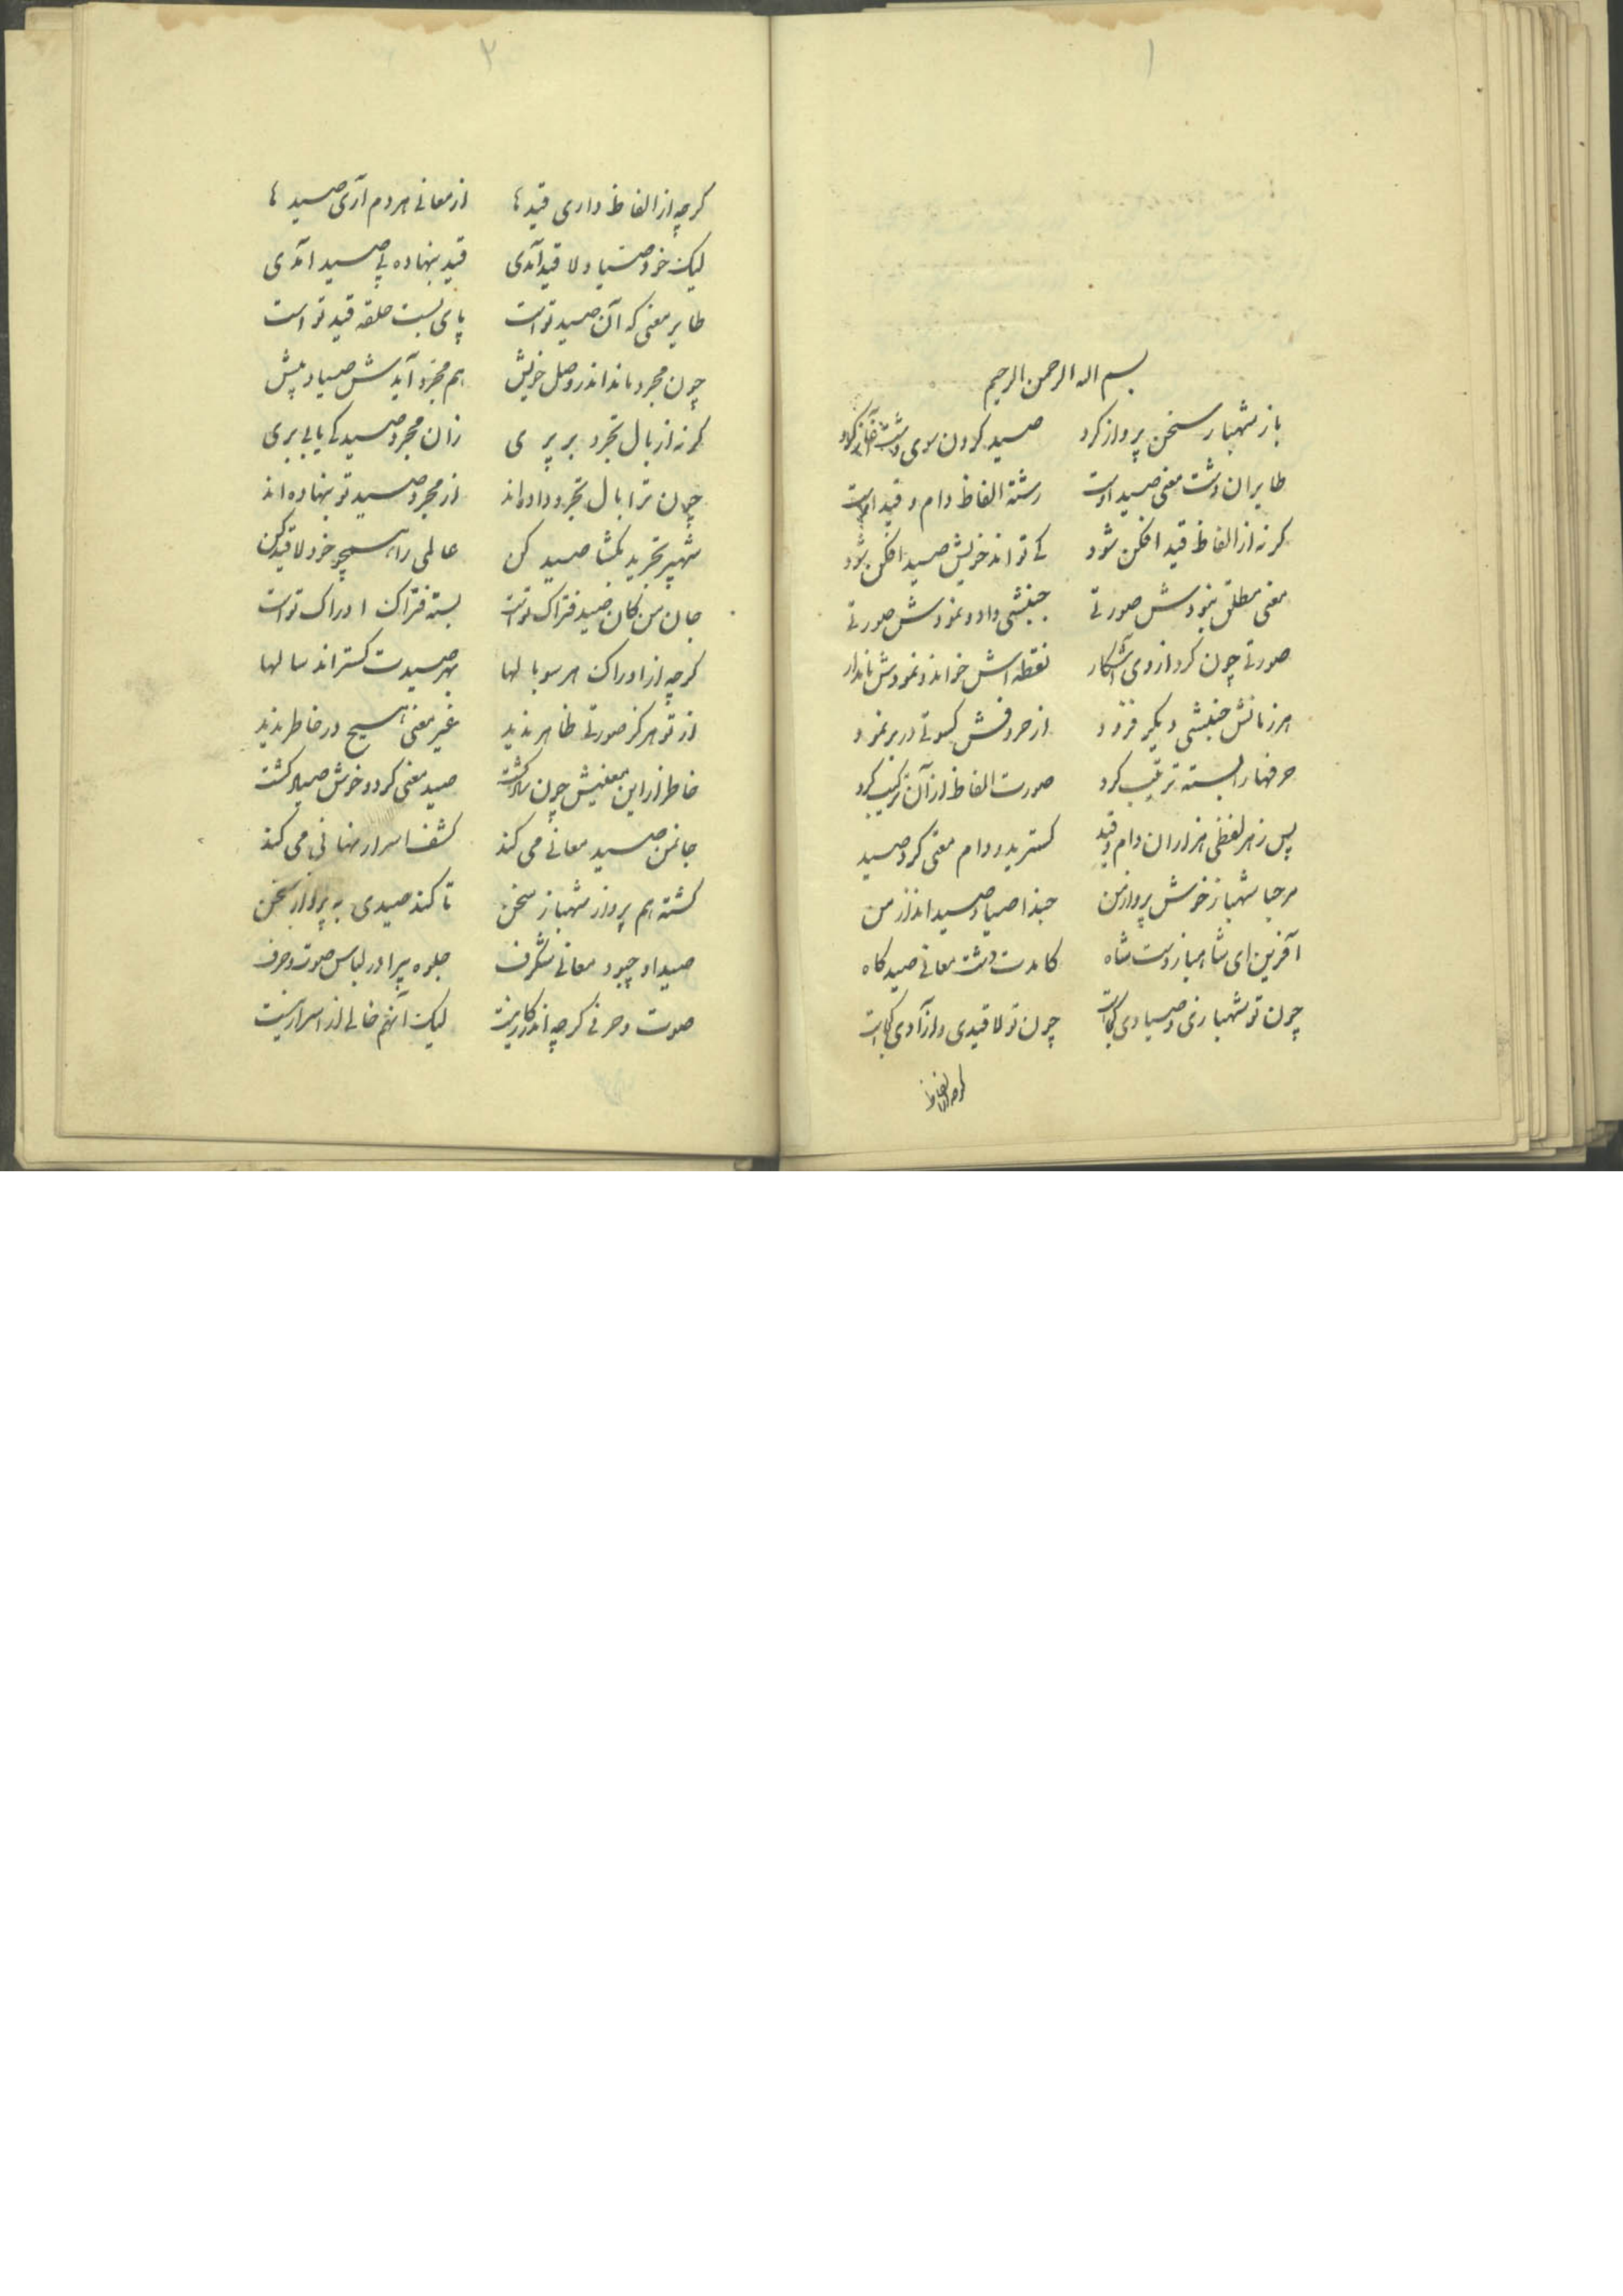 ۱
بسم الله الرحمن الرحیم
باز شهباز سخن پرواز کرد صید کردن سوی دشت آغاز کرد
طایران دشت معنی صید اوست رشته الفاظ دام و قید اوست
کر نه از الفاظ قید افکن شود کے تواند خویش صید افکن شود
معنی مطلق نبودش صورتے جنبشی داد و نمودش صورتے
صورتے چون کرد از وی آشکار نقطه اش خواند و نمودش پایدار
هر زمانش جنبشی دیکر فزود از حروفش کسوتے در بر نمود
حرفها را بسته ترتیب کرد صورت الفاظ از آن ترکیب کرد
پس ز هر لفظی هزاران دام و قید کسترید و دام معنی کرد صید
مرحبا شهباز خوش پرواز من حبذا صیاد صید انداز من
آفرین ای شاهباز دست شاه کامدت دشت معانے صید کاه
چون تو شهبازی و صیادی کجاست چون تو لا قیدی و آزادی کجاست
کرچه از الفاظ
۲
کرچه از الفاظ داری قید ها از معانے هر دم آری صید ها
لیک خود صیاد لا قید آمدی قید بنهاده پے صید آمدی
طایر معنی که آن صید تو است پای بست حلقه قید تو است
چون مجرد ماند اندر وصل خویش هم مجرد آیدش صیاد پیش
کر نه از بال تجرد بر پری زان مجرد صید کے یابی بری
چون ترا بال تجرد داده اند از مجرد صید تو بنهاده اند
شهپر تجرید بکشا صید کن عالمی را همچو خود لا قید کن
جان من کان صید فتراک تو است بسته فتراک ادراک تو است
کرچه از ادراک هر سو بالها بهر صیدت کستراند سالها
از تو هرکز صورتے ظاهر ندید غیر معنی هیچ در خاطر ندید
خاطر از این معنیش چون شاد کشت صید معنی کرد و خوش صیاد کشت
جانمن صید معانے می کند کشف اسرار نهانی می کند
کشته هم پرواز شهباز سخن تا کند صیدی به پرواز سخن
صید او چبود معانے شکرف جلوه پیرا در لباس صوت و حرف
صوت و حرفے کرچه اندر کار نیست لیک آنهم خالے از اسرار نیست